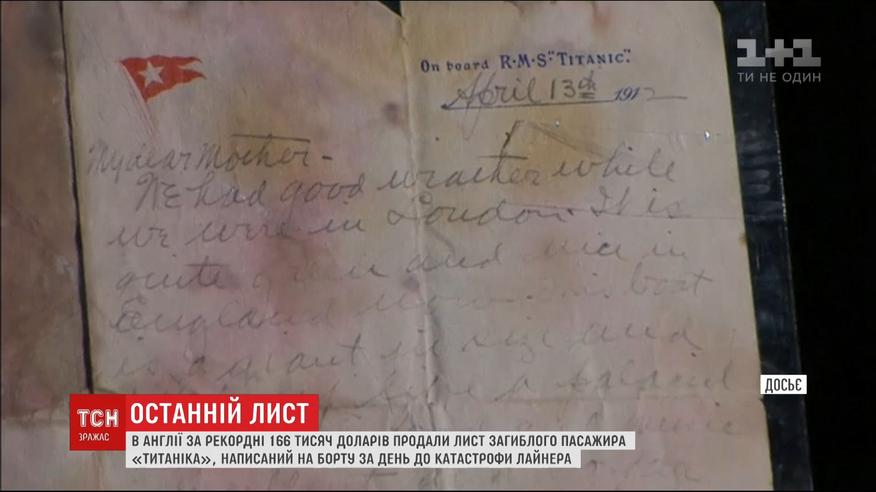 On board R·M·S "TITANIC".
April 13th 1912
1+1
ТИ НЕ ОДИН
My dear Mother-
We had good weather while
we were in London. It is
quite green and nice in
England now. This boat
is a giant in size and
ДОСЬЄ
ТСН
ВРАЖАЄ
ОСТАННІЙ ЛИСТ
В АНГЛІЇ ЗА РЕКОРДНІ 166 ТИСЯЧ ДОЛАРІВ ПРОДАЛИ ЛИСТ ЗАГИБЛОГО ПАСАЖИРА
«ТИТАНІКА», НАПИСАНИЙ НА БОРТУ ЗА ДЕНЬ ДО КАТАСТРОФИ ЛАЙНЕРА